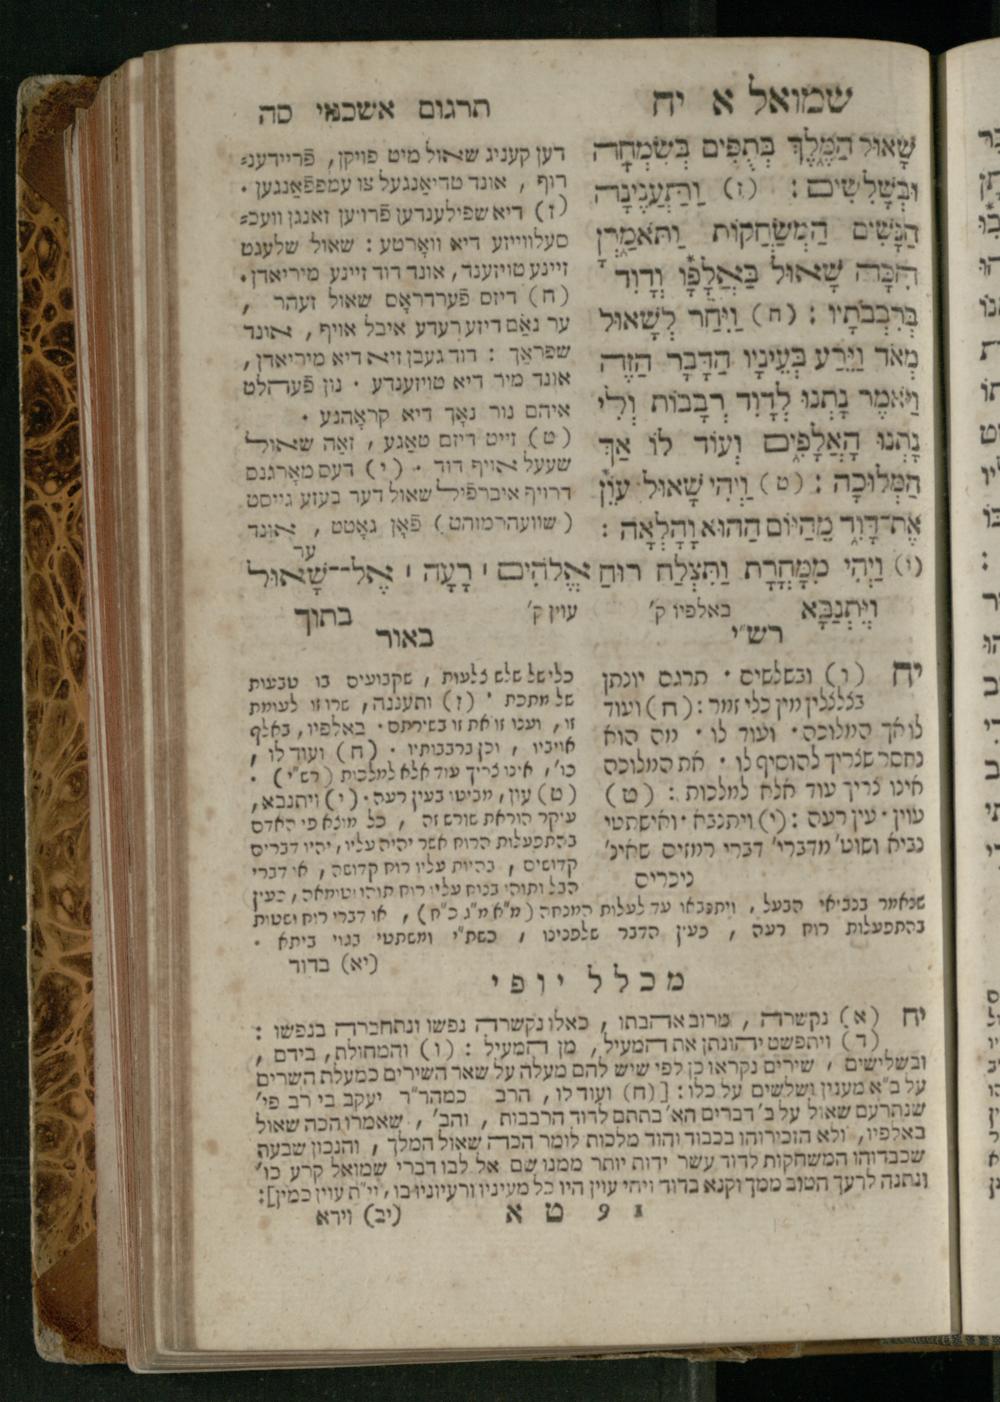 שמואל א יח
תרגום אשכנזי סה
שָׁאוּל הַמֶּלֶךְ בְּתֻפִּים בְּשִׂמְחָה
וּבְשָׁלִשִׁים : (ז) וַתַּעֲנֶינָה
הַנָּשִׁים הַמְשַׂחֲקוֹת וַתֹּאמַרְןָ
הִכָּה שָׁאוּל בַּאֲלָפָו וְדָוִד
בְּרִבְבֹתָיו : (ח) וַיִּחַר לְשָׁאוּל
מְאֹד וַיֵּרַע בְּעֵינָיו הַדָּבָר הַזֶּה
וַיֹּאמֶר נָתְנוּ לְדָוִד רְבָבוֹת וְלִי
נָתְנוּ הָאֲלָפִים וְעוֹד לוֹ אַךְ
הַמְּלוּכָה : (ט) וַיְהִי שָׁאוּל עוֵֹן
אֶת־דָּוִד מֵהַיּוֹם הַהוּא וָהָלְאָה :
(י) וַיְהִי מִמָּחֳרָת וַתִּצְלַח רוּחַ אֱלֹהִים ׀ רָעָה ׀ אֶל־־שָׁאוּל
וַיִּתְנַבֵּא
באלפיו ק' עוין ק'
בתוך
דען קעניג שאול מיט פויקן, פֿריידענ=
רוף , אונד טריאַנגעל צו עמפפֿאַנגען .
(ז) דיא שפילענדען פֿרויען זאנגן וועכ=
סעלווייזע דיא וואָרטע : שאול שלעגט
זיינע טויזענד, אונד דוד זיינע מיריאדן.
(ח) דיזם פֿערדראָם שאול זעהר ,
ער נאַם דיזע רעדע איבל אויף , אונד
שפראַך : דוד געבן זיא דיא מיריאדן,
אונד מיר דיא טויזענדע . נון פֿעהלט
איהם נור נאָך דיא קראָהנע .
(ט) זייט דיזם טאַגע , זאַה שאול
שעעל אויף דוד . (י) דעם מאָרגנם
דרויף איברפֿיל שאול דער בעזע גייסט
(שוועהרמוהט) פֿאָן גאָטט , אונד
ער
רש"י
יח (ו) ובשלשים . תרגם יונתן
בצלצלין מין כלי זמר : (ח) ועוד
לו אך המלוכה . ועוד לו . מה הוא
נחסר שצריך להוסיף לו . את המלוכה
אינו צריך עוד אלא למלכות : (ט)
עוין . עין רעה : (י) ויתנבא . ואישתטי
נביא ושוט' מדברי' דברי רמזים שאינ'
ניכרים
באור
כלי של שלש צלעות , שקבועים בו טבעות
של מתכת . (ז) ותעננה, שרו זו לעומת
זו , וענו זו את זו בשירתם . באלפיו, באלף
אויביו , וכן ברבבותיו . (ח) ועוד לו ,
כו', אינו צריך עוד אלא למלכות (רש"י) .
(ט) עון, מביט בעין רעה . (י) ויתנבא,
עיקר הוראת שורש זה , כל מוצא פי האדם
בהתפעלות הרוח אשר יהיה עליו, יהיו דברים
קדושים , בהיות עליו רוח קדושה , או דברי
הבל ותוהו בנוח עליו רוח תוהו וטומאה , כעין
שנאמר בנביאי הבעל , ויתנבאו עד לעלות המנחה (מ"א מ"ג כ"ח) , או דברי רוח ושטות
בהתפעלות רוח רעה , כעין הדבר שלפנינו , כשת"י ומשתטי בגוי ביתא .
(יא) בדוד
מכלל יופי
יח (א) נקשרה , מרוב אהבתו , כאלו נקשרה נפשו ונתחברה בנפשו :
(ד) ויתפשט יהונתן את המעיל, מן המעיל : (ו) והמחולת, בידם ,
ובשלישים , שירים נקראו כן לפי שיש להם מעלה על שאר השירים כמעלת השרים
על ב"א מענין ושלשים על כלו : [(ח) ועוד לו , הרב כמהר"ר יעקב בי רב פי'
שנתרעם שאול על ב' דברים הא' בתתם לדוד הרבבות , והב' , שאמרו הכה שאול
באלפיו, ולא הזכירוהו בכבוד והוד מלכות לומר הכה שאול המלך , והנכון שבעה
שכבדוהו המשחקות לדוד עשר ידות יותר ממנו שם אל לבו דברי שמואל קרע כו'
ונתנה לרעך הטוב ממך וקנא בדוד ויהי עוין היו כל מעיניו ורעיוניו בו, וי"ת עוין כמין]:
1 9 ט א
(יב) וירא